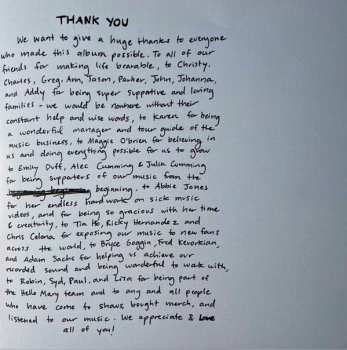 THANK YOU
We want to give a huge thanks to everyone
who made this album possible. To all of our
friends for making life bearable, to Christy,
Charles, Greg, Ann, Jason, Parker, John, Johanna,
and Addy for being super supportive and loving
families - we would be nowhere without their
constant help and wise words, to Karen for being
a wonderful manager and tour guide of the
music business, to Maggie O'brien for believing in
us and doing everything possible for us to grow
to Emily Duff, Alec Cumming & Julia Cumming
for being supporters of our music from the
beginning. to Abbie Jones
for her endless hard work on sick music
videos, and for being so gracious with her time
& creativity, to Tim Ho, Ricky Hernandez and
Chris Celona for exposing our music to new fans
across the world, to Bryce Goggin, Fred Kevorkian,
and Adam Sachs for helping us achieve our
recorded sound and being wonderful to work with,
to Robin, Syd, Paul, and Liza for being part of
the Hello Mary team and to any and all people
who have come to shows, bought merch, and
listened to our music. We appreciate & love
all of you!